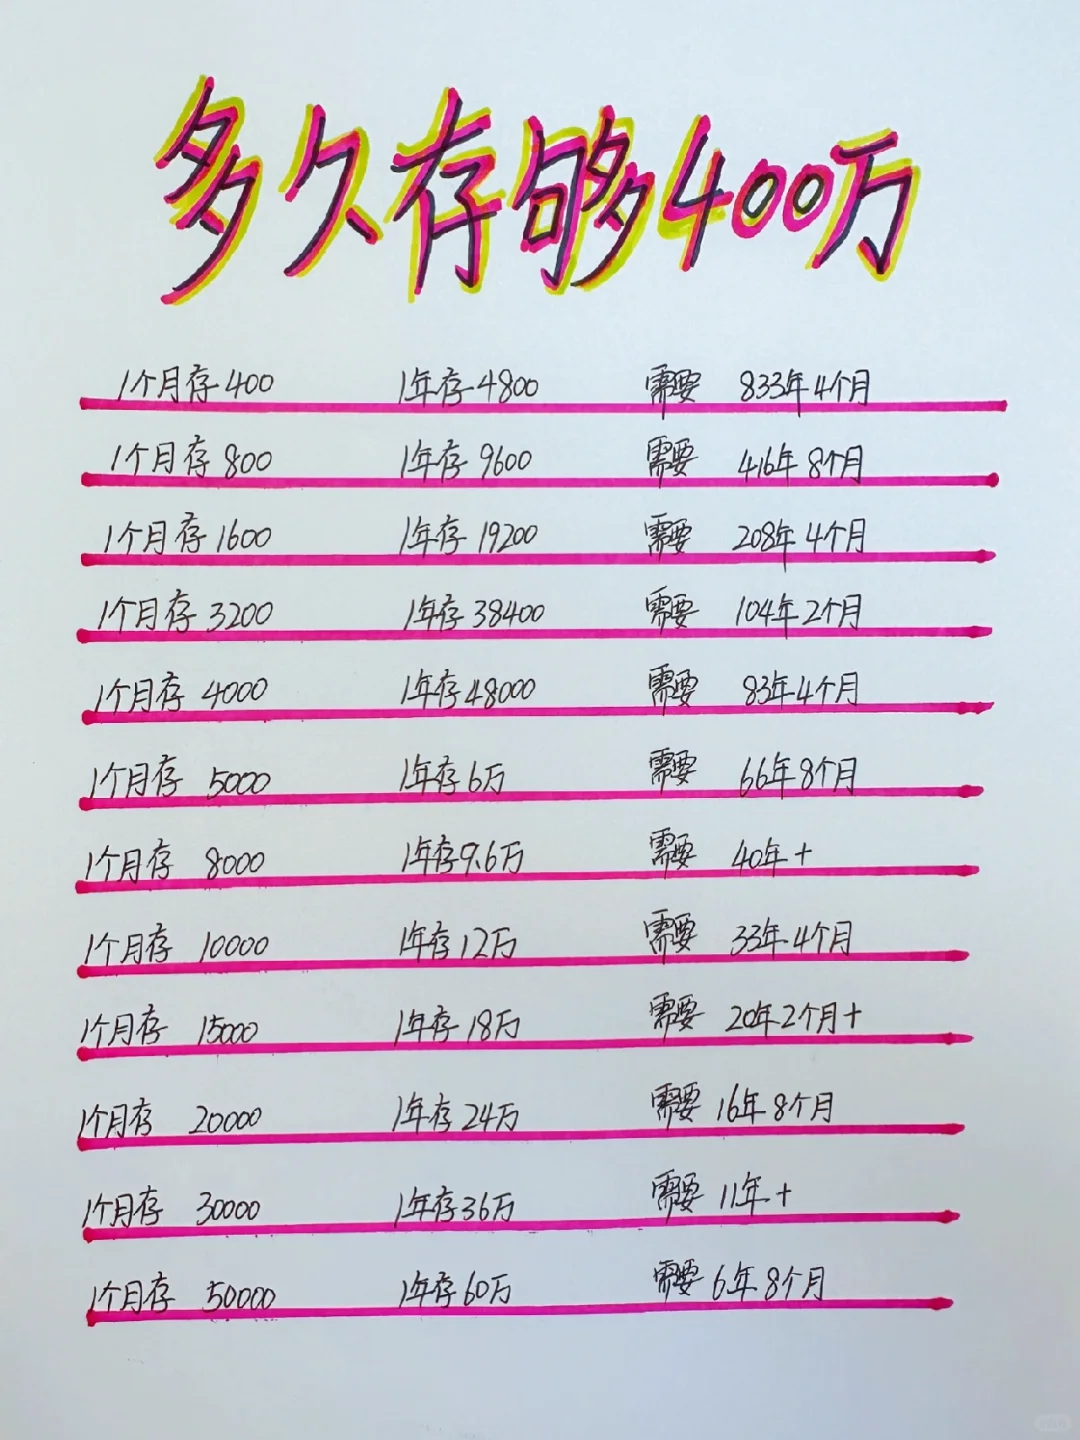 多久存够400万
1个月存400 1年存4800 需要 833年4个月
1个月存800 1年存9600 需要 416年8个月
1个月存1600 1年存19200 需要 208年4个月
1个月存3200 1年存38400 需要 104年2个月
1个月存4000 1年存48000 需要 83年4个月
1个月存 5000 1年存6万 需要 66年8个月
1个月存 8000 1年存9.6万 需要 40年+
1个月存 10000 1年存12万 需要 33年4个月
1个月存 15000 1年存18万 需要 20年2个月+
1个月存 20000 1年存24万 需要 16年8个月
1个月存 30000 1年存36万 需要 11年+
1个月存 50000 1年存60万 需要 6年8个月